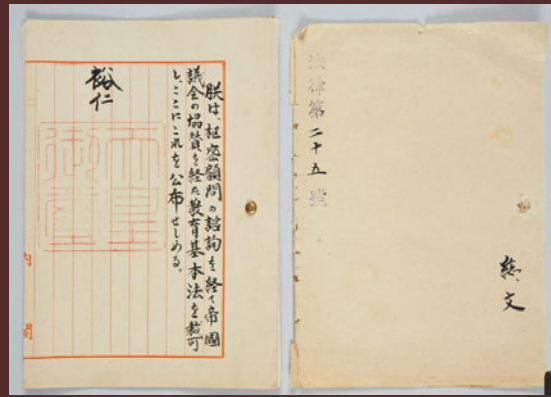 法律第二十五號
朕は、枢密顧問の諮詢を経て帝國
議会の協賛を経た教育基本法を裁可
し、ここにこれを公布せしめる。
裕仁
天皇
御璽
内閣